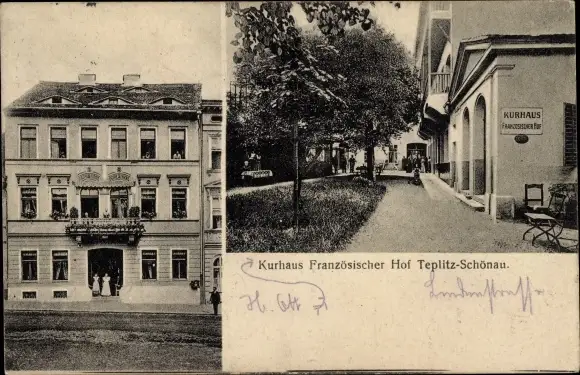 KURHAUS
FRANZÖSISCHER HOF
Kurhaus Französischer Hof Teplitz-Schönau.